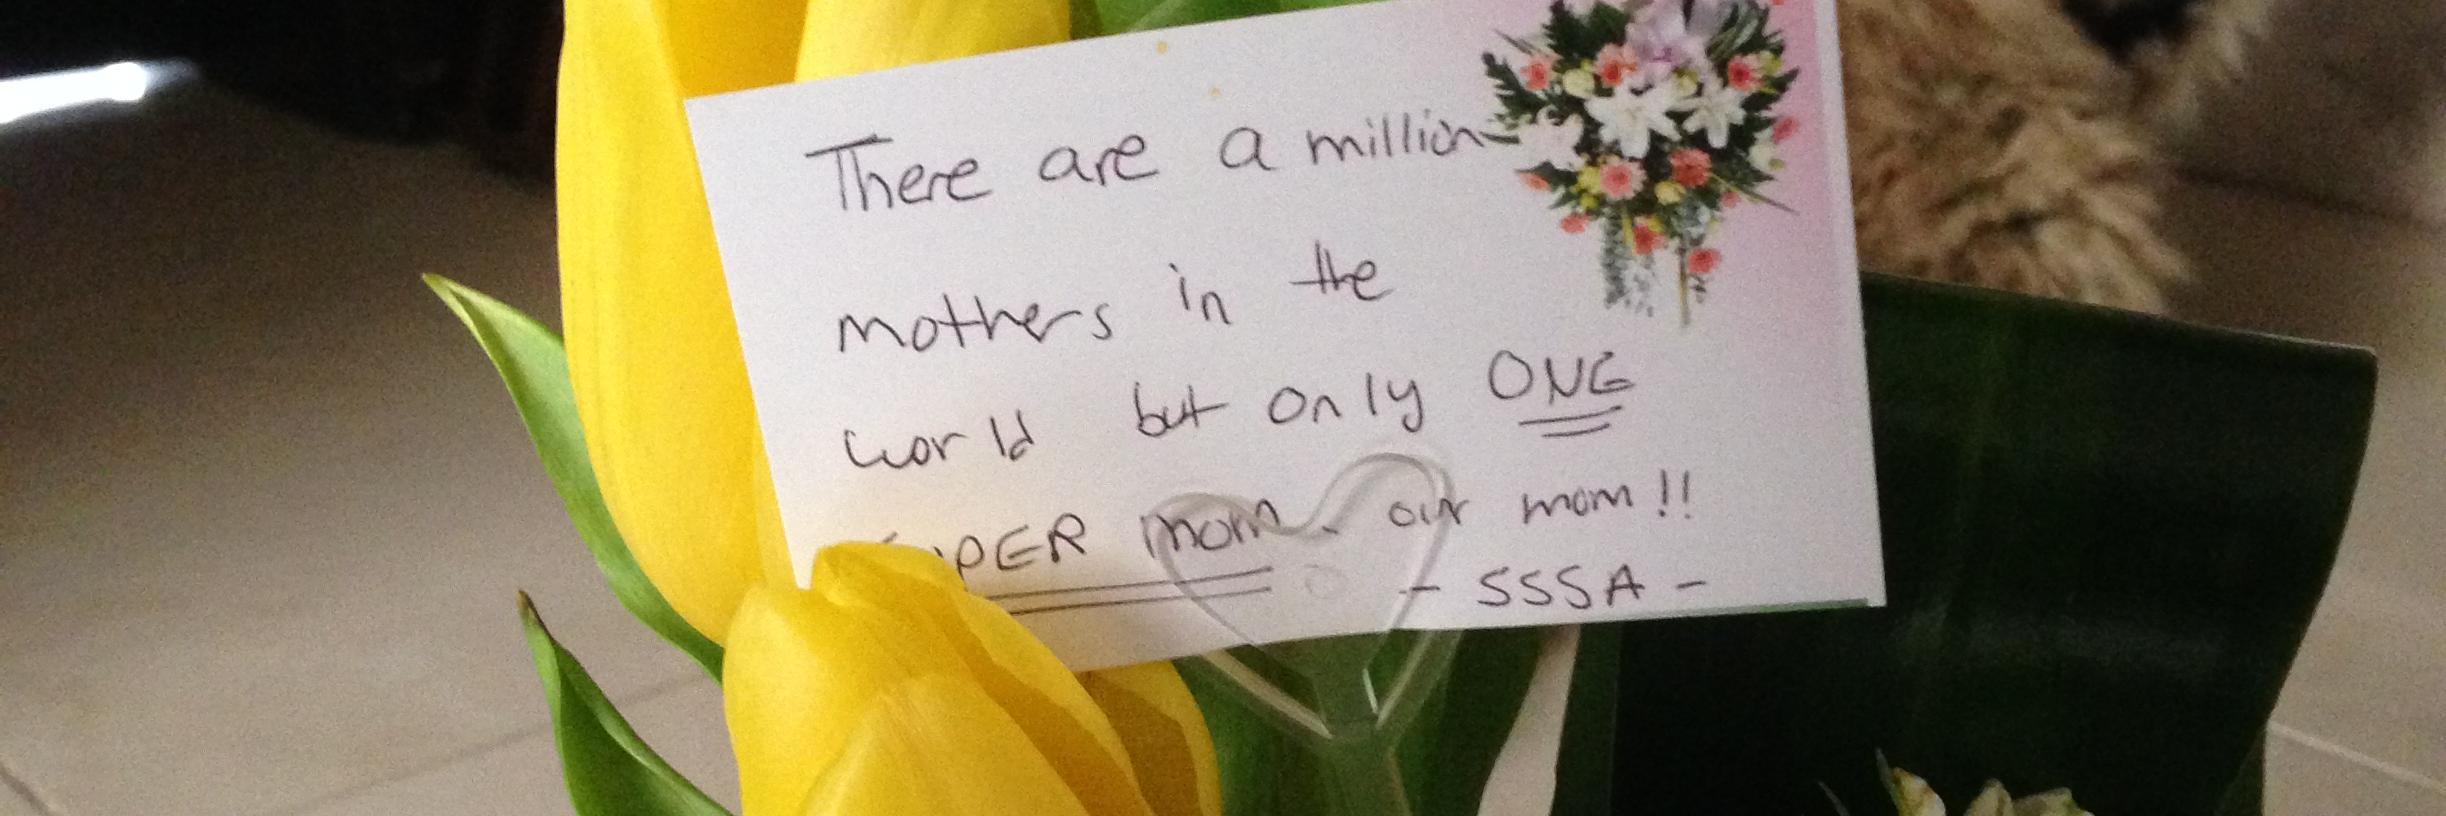 There are a million
mothers in the
world but only ONE
SUPER mom. our mom!!
- SSSA -